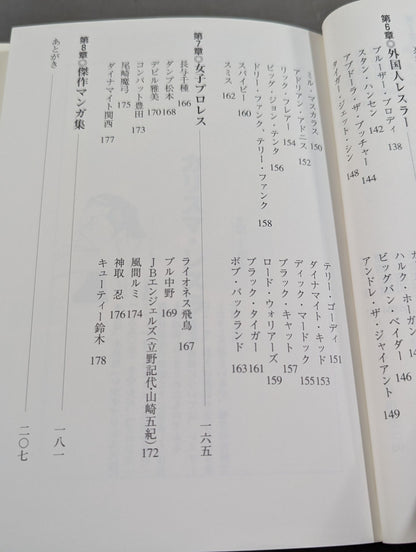 第6章◎外国人レスラー
ブルーザー・ブロディ 138
スタン・ハンセン 142
アブドーラ・ザ・ブッチャー 144
タイガー・ジェット・シン 148
ハルク・ホーガン
ビッグバン・ベイダー
アンドレ・ザ・ジャイアント 149
ミル・マスカラス 150
アドリアン・アドニス 152
リック・フレアー 154
ビッグ・ジョン・テンタ 156
ドリー・ファンク、テリー・ファンク 158
スパイビー 160
スミス 162
テリー・ゴーディ 151
ダイナマイト・キッド 153
ディック・マードック 155
ブラック・キャット 157
ロード・ウォリアーズ 159
ブラック・タイガー 161
ボブ・バックランド 163
第7章◎女子プロレス 一六五
長与千種 166
ダンプ松本 168
デビル雅美 170
コンバット豊田 173
尾崎魔弓 175
ダイナマイト関西 177
ライオネス飛鳥 167
ブル中野 169
JBエンジェルズ(立野記代・山崎五紀) 172
風間ルミ 174
神取 忍 176
キューティー鈴木 178
第8章◎傑作マンガ集 一八一
あとがき 二〇七